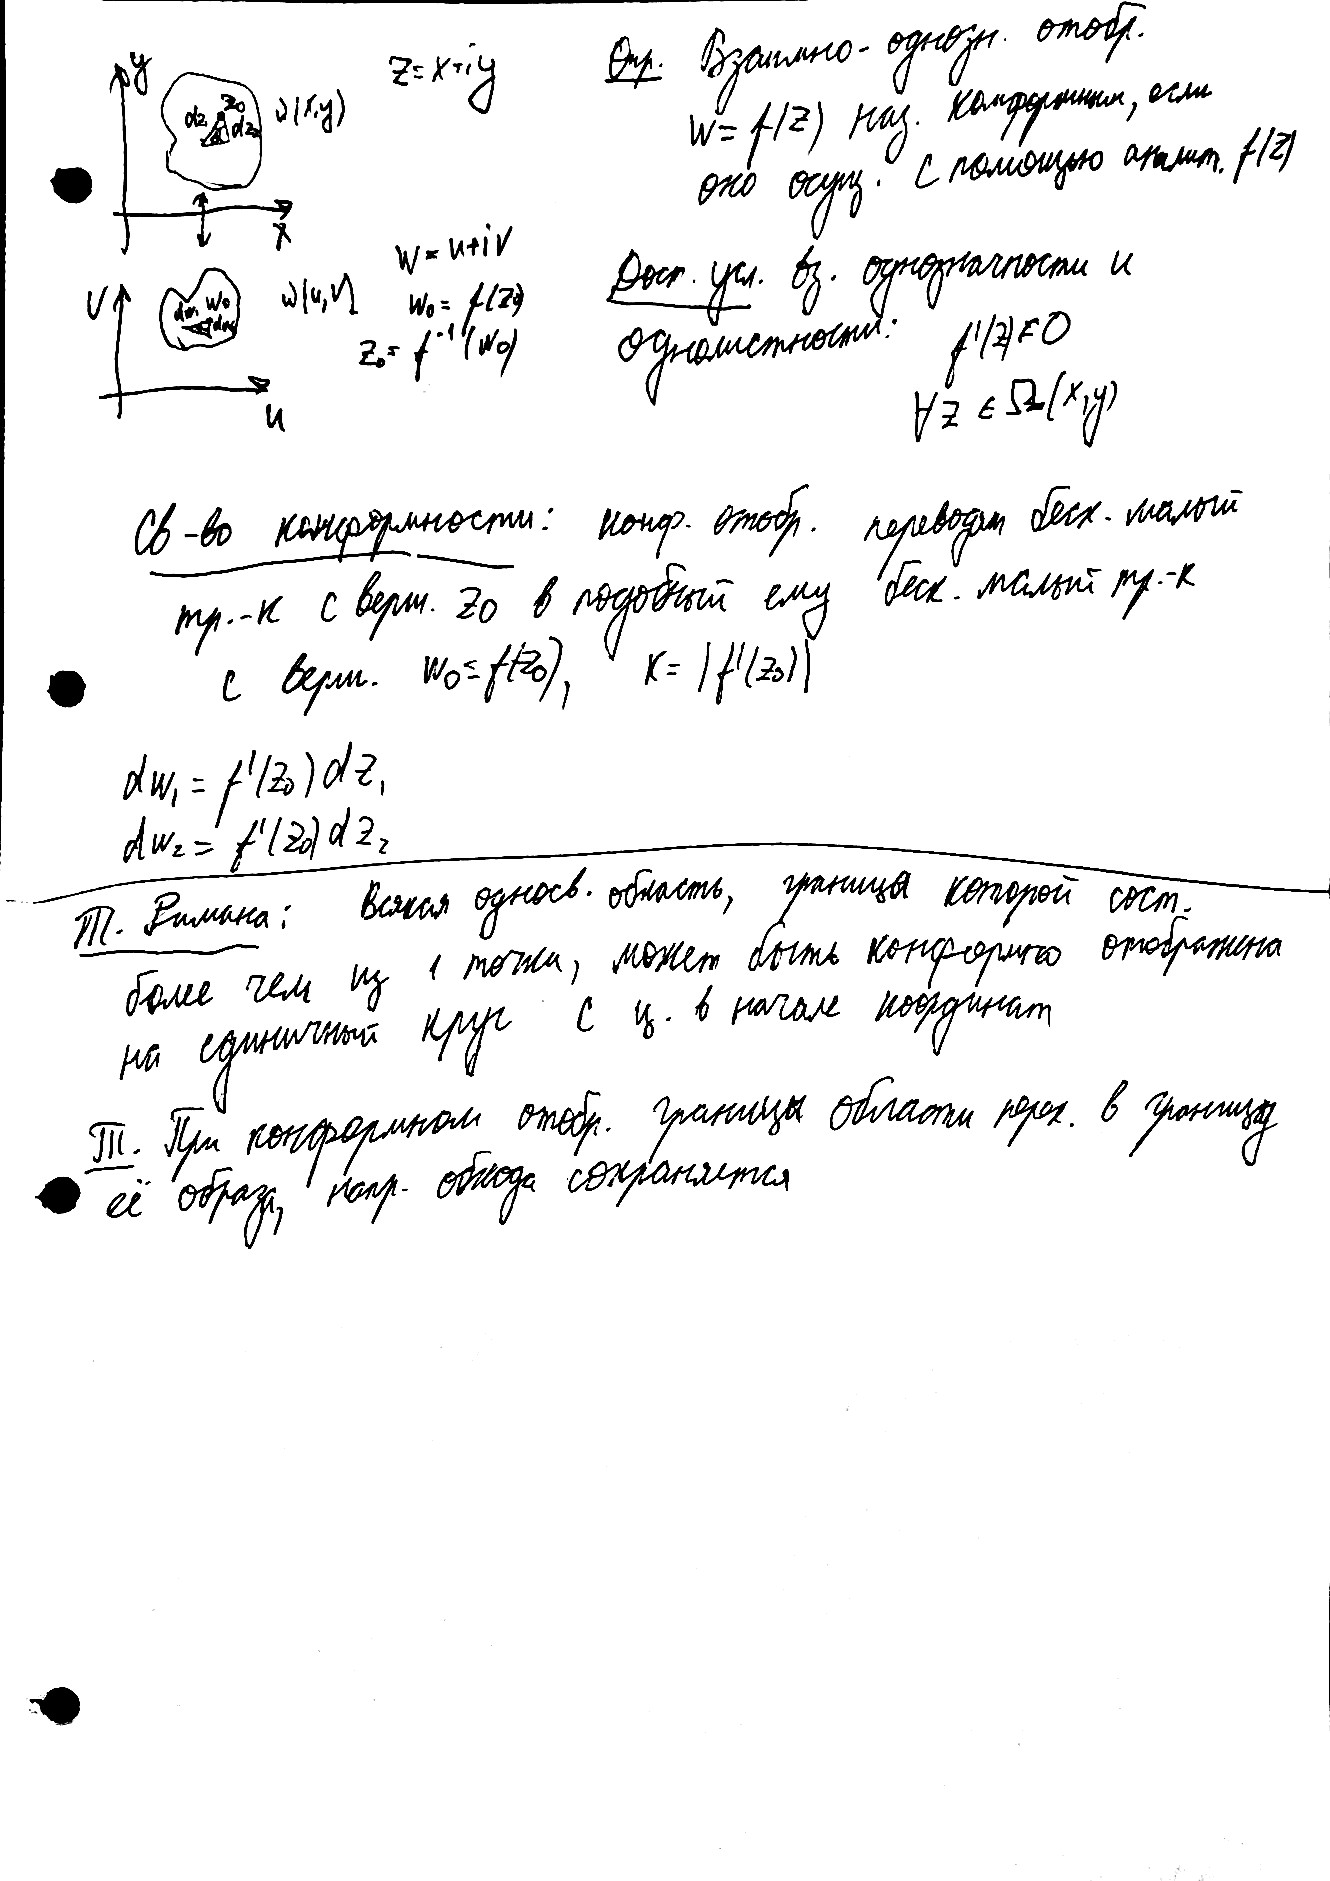 y
z = x+iy
dz z₀ dz₂
ω(x,y)
x
w = u+iv
v
w₀
ω(u,v)
w₀ = f(z₀)
z₀ = f⁻¹(w₀)
u
Опр. Взаимно-однозн. отобр.
w = f(z) наз. конформным, если
оно осущ. с помощью аналит. f(z)
Дост. усл. вз. однозначности и
однолистности: f'(z) ≠ 0
∀z ∈ Ω(x,y)
Св-во конформности: конф. отобр. переводит беск. малый
тр.-к с верш. z₀ в подобный ему беск. малый тр.-к
с верш. w₀ = f(z₀), k = |f'(z₀)|
dw₁ = f'(z₀) dz₁
dw₂ = f'(z₀) dz₂
Т. Римана: Всякая односв. область, граница которой сост.
более чем из 1 точки, может быть конформно отображена
на единичный круг с ц. в начале координат
Т. При конформном отобр. границы области перех. в границу
её образа, напр. обхода сохраняется